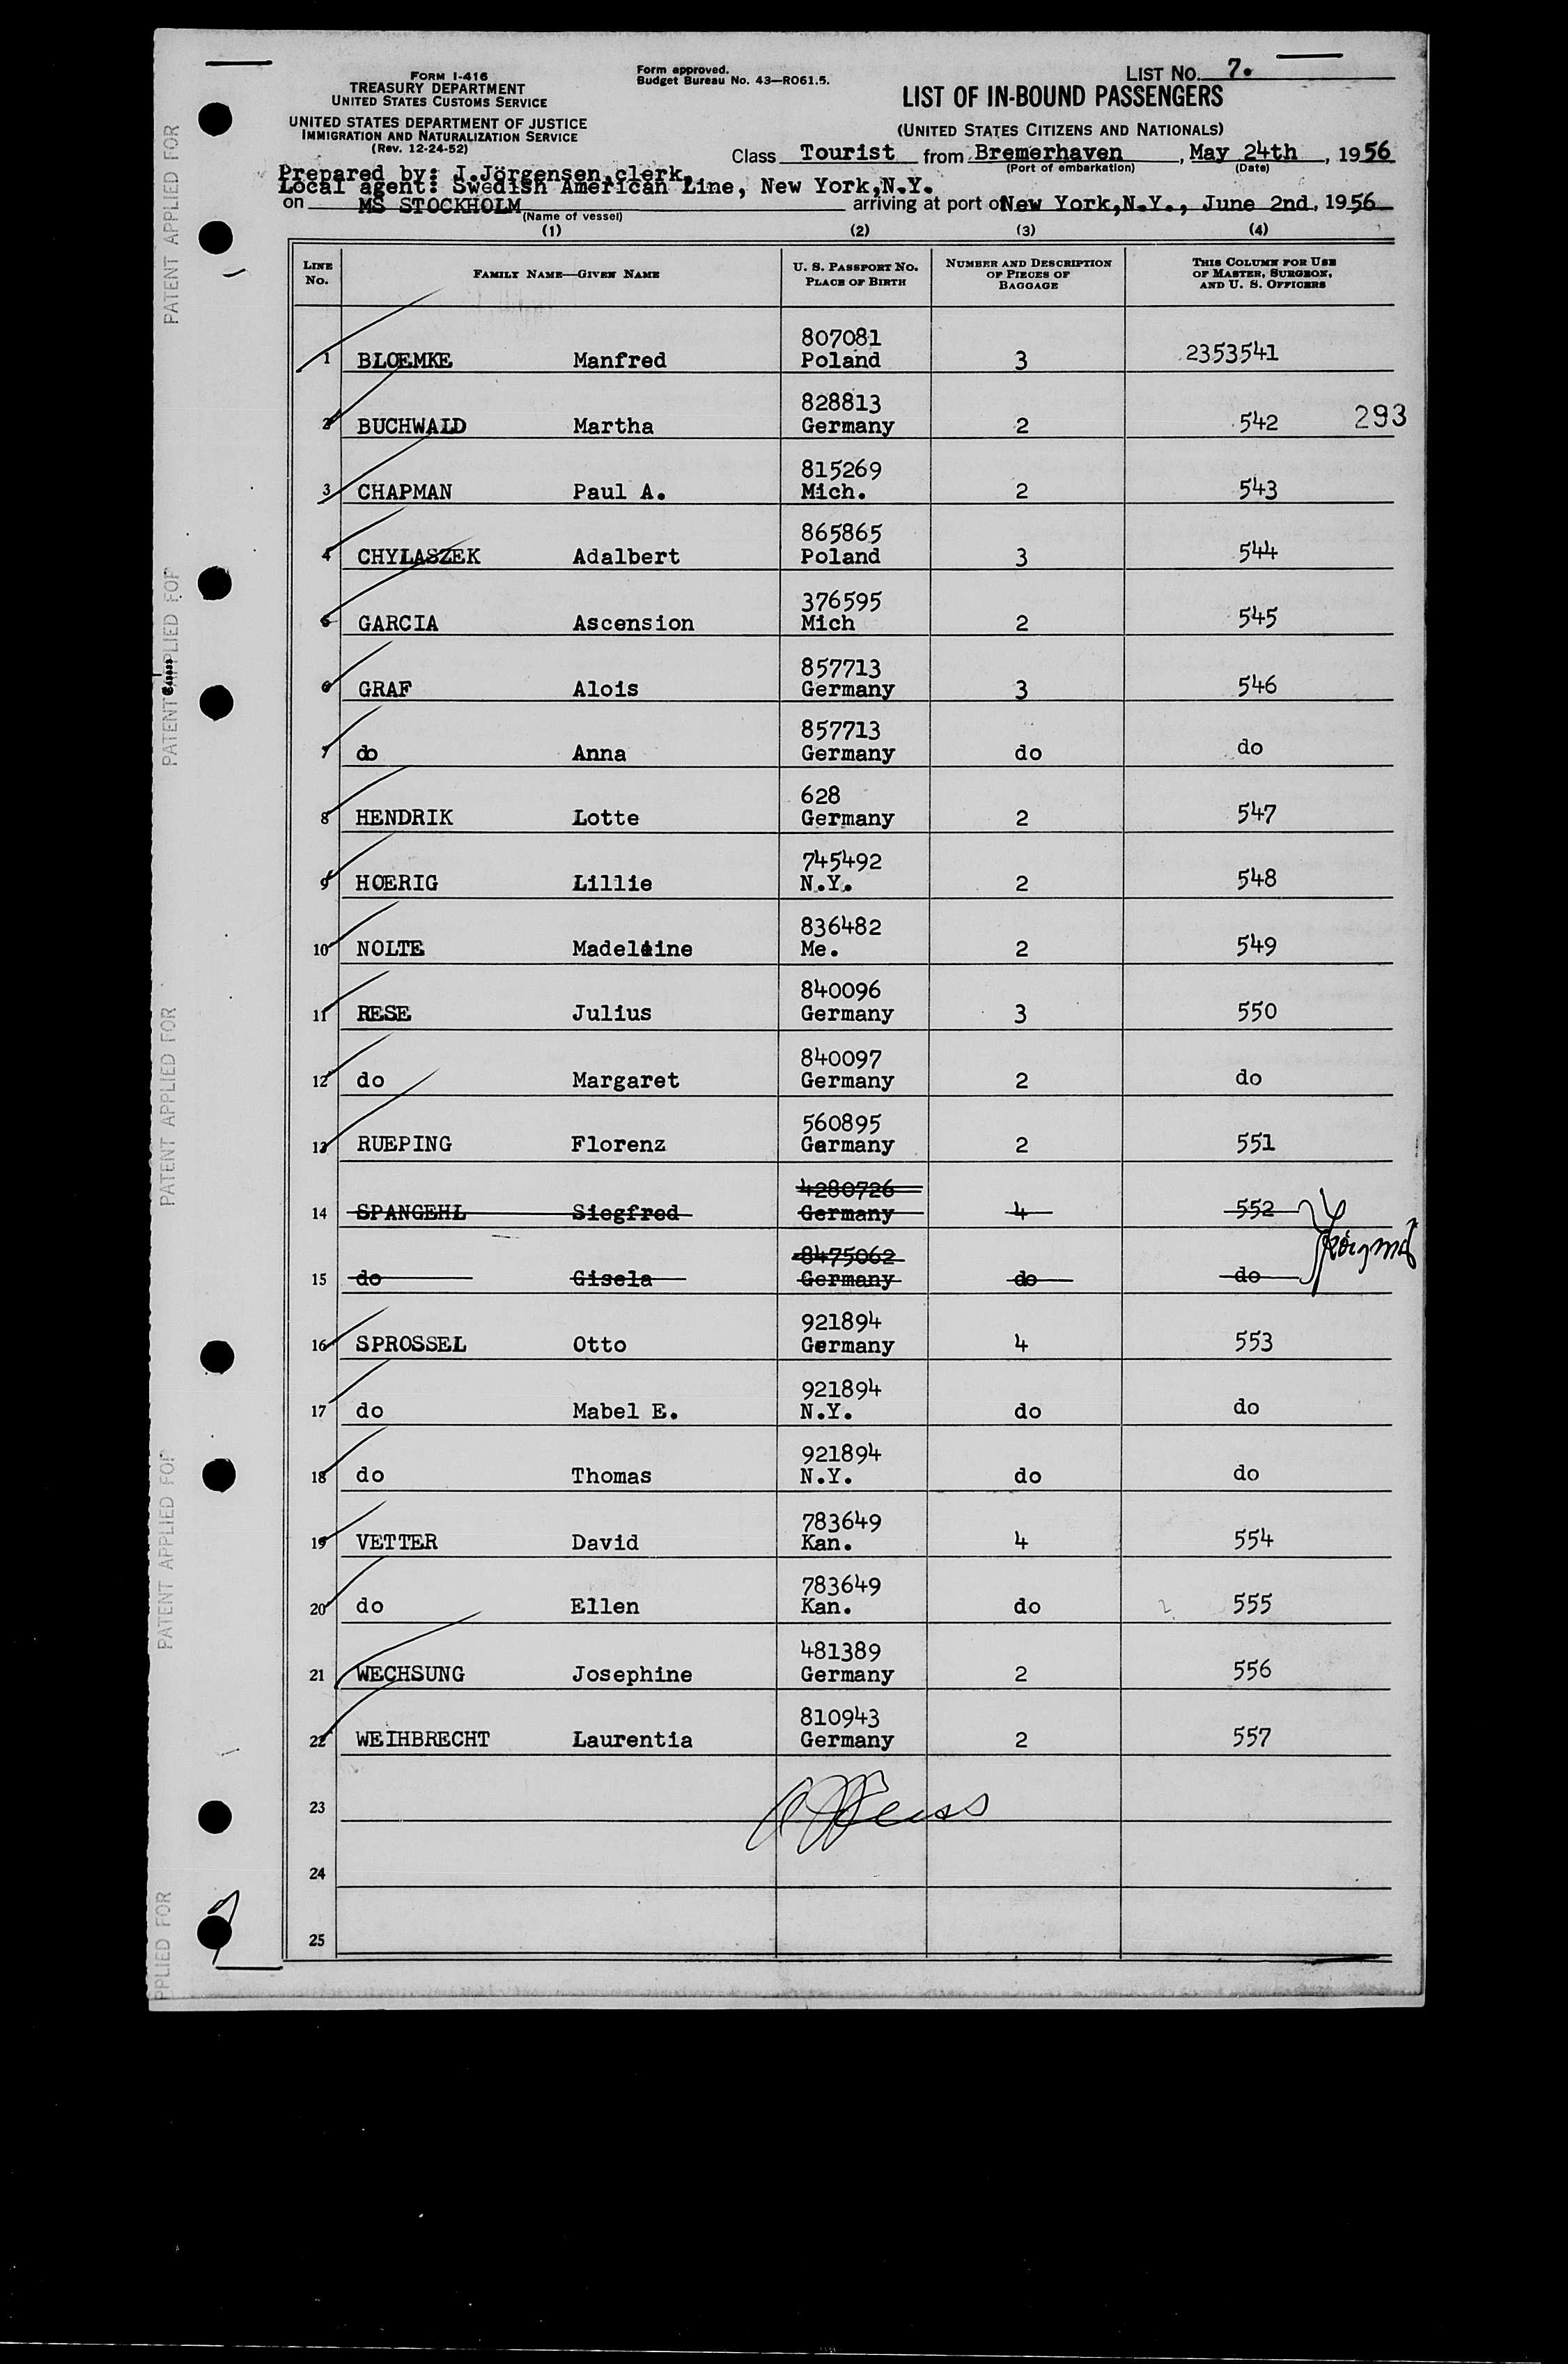 FORM I-416
TREASURY DEPARTMENT
UNITED STATES CUSTOMS SERVICE
UNITED STATES DEPARTMENT OF JUSTICE
IMMIGRATION AND NATURALIZATION SERVICE
(Rev. 12-24-52)
Form approved.
Budget Bureau No. 43—RO61.5.
LIST NO. 7.
LIST OF IN-BOUND PASSENGERS
(UNITED STATES CITIZENS AND NATIONALS)
Class Tourist from Bremerhaven, May 24th, 1956
(Port of embarkation) (Date)
Prepared by: J.Jörgensen,clerk,
Local agent: Swedish American Line, New York,N.Y.
on MS STOCKHOLM arriving at port of New York,N.Y., June 2nd, 1956
(Name of vessel)
(1) (2) (3) (4)
LINE No. FAMILY NAME—GIVEN NAME U. S. PASSPORT NO. PLACE OF BIRTH NUMBER AND DESCRIPTION OF PIECES OF BAGGAGE THIS COLUMN FOR USE OF MASTER, SURGEON, AND U. S. OFFICERS
807081
1 BLOEMKE Manfred Poland 3 2353541
828813
2 BUCHWALD Martha Germany 2 542 293
815269
3 CHAPMAN Paul A. Mich. 2 543
865865
4 CHYLASZEK Adalbert Poland 3 544
376595
5 GARCIA Ascension Mich 2 545
857713
6 GRAF Alois Germany 3 546
857713
7 do Anna Germany do do
628
8 HENDRIK Lotte Germany 2 547
745492
9 HOERIG Lillie N.Y. 2 548
836482
10 NOLTE Madeleine Me. 2 549
840096
11 RESE Julius Germany 3 550
840097
12 do Margaret Germany 2 do
560895
13 RUEPING Florenz Germany 2 551
4280726
14 SPANGEHL Siegfred Germany 4 552
8475062
15 do Gisela Germany do do
921894
16 SPROSSEL Otto Germany 4 553
921894
17 do Mabel E. N.Y. do do
921894
18 do Thomas N.Y. do do
783649
19 VETTER David Kan. 4 554
783649
20 do Ellen Kan. do 2 555
481389
21 WECHSUNG Josephine Germany 2 556
810943
22 WEIHBRECHT Laurentia Germany 2 557
23
24
25
PATENT APPLIED FOR
PATENT APPLIED FOR
PATENT APPLIED FOR
PATENT APPLIED FOR
PPLIED FOR